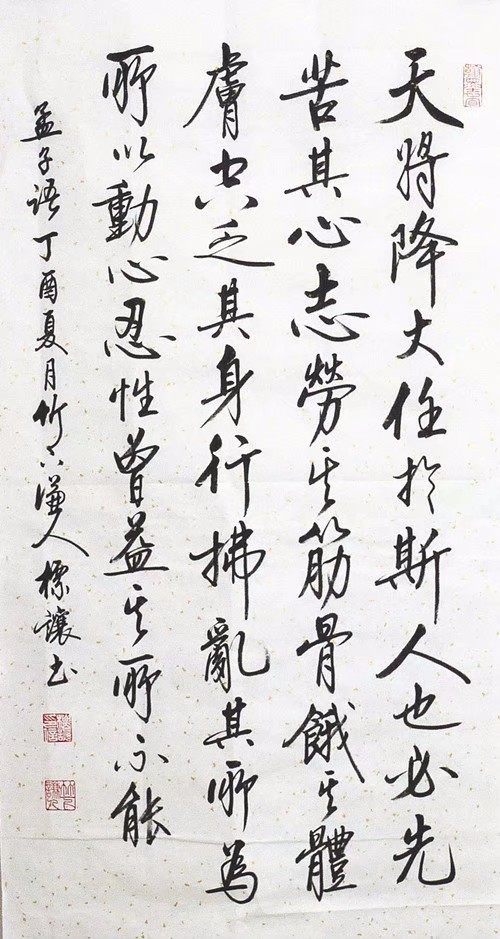 天將降大任於斯人也必先
苦其心志勞其筋骨餓其體
膚空乏其身行拂亂其所為
所以動心忍性曾益其所不能
孟子語丁酉夏月竹下謙人標讓書